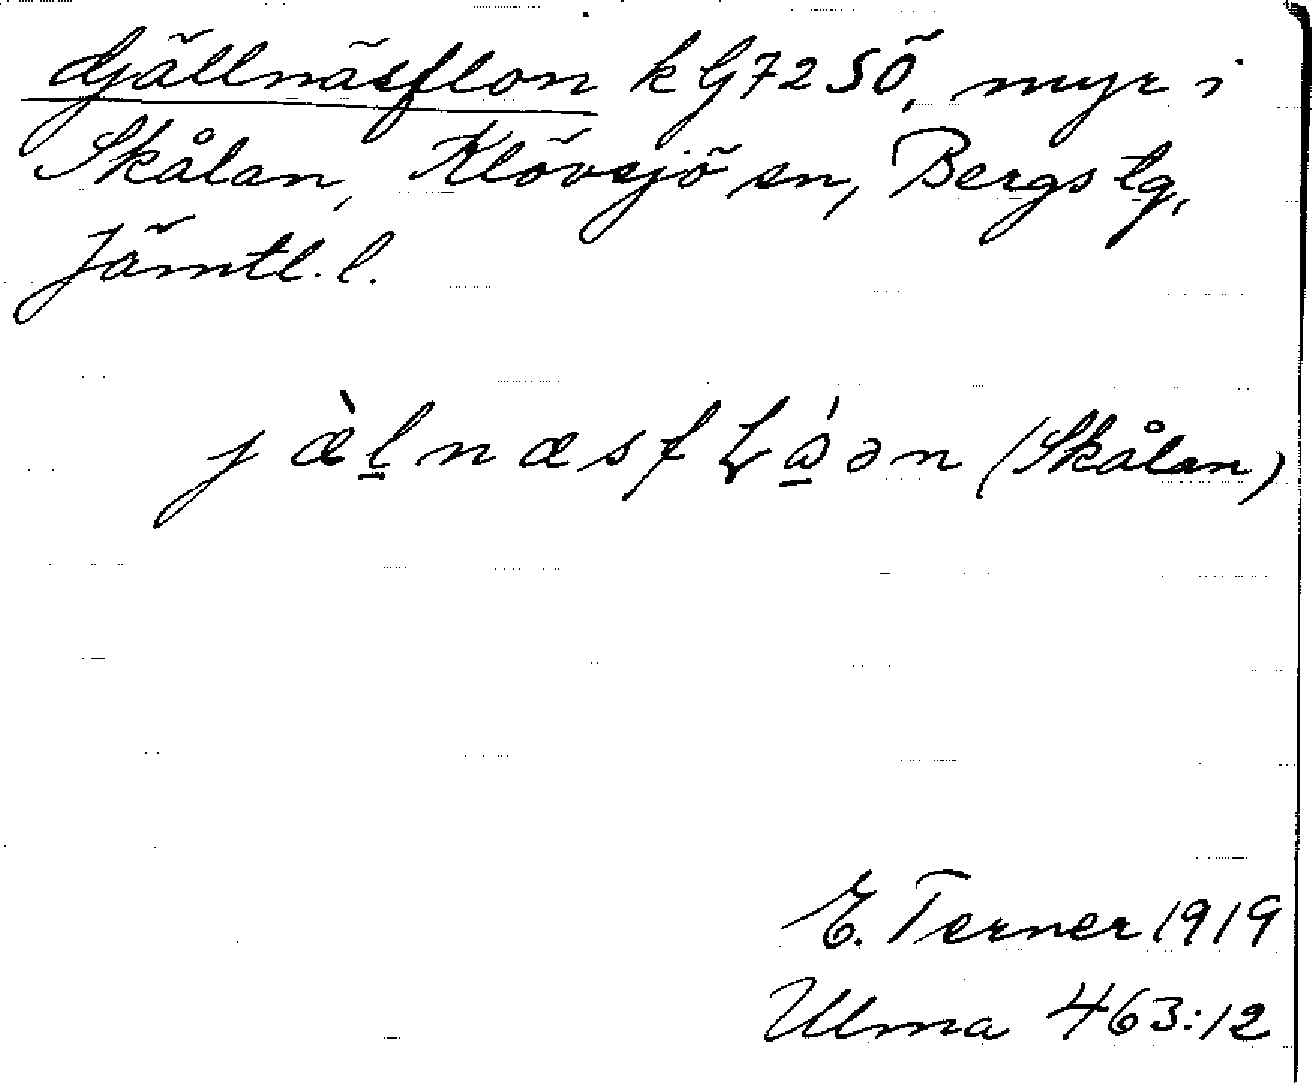 djällnäsflon k G7250, myr i
Skålan, Klövsjö sn, Bergs tg,
Jämtl. l.
jæ̀l̠næsfɫɷ̠́ən (Skålan)
E. Terner 1919
Ulma 463:12